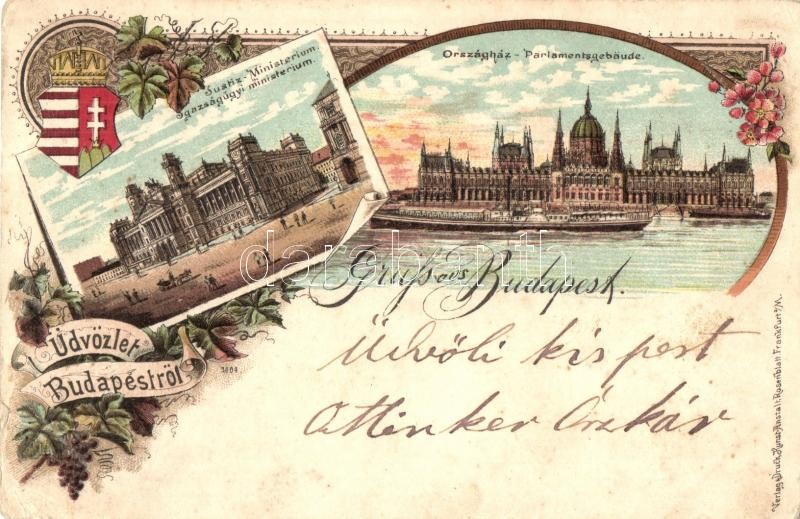 Justiz-Ministerium.
Igazságügyi ministerium.
Országház - Parlamentsgebäude.
darabanth
Gruss aus Budapest.
Üdvözlet
Budapestről
3604
Üdvöli kis pest
Oszkár
Verlag, Druck, Kunst-Anstalt, Rosenblatt Frankfurt a/M.